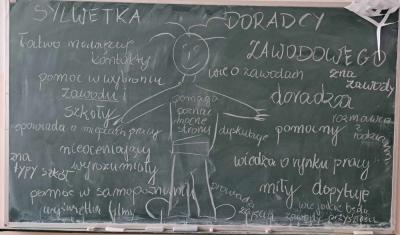 SYLWETKA DORADCY
ZAWODOWEGO
łatwo nawiązuje
kontakty
pomoc w wyborze
zawodu i
szkoły
opowiada o miejscach pracy
nieoceniający
wyrozumiały
zna
typy szkół
pomoc w samopoznaniu
wyświetla filmy
pomaga
poznać
mocne
strony
wie o zawodach
zna
zawody
doradza
rozmawia
z rodzicami
dyskutuje
pomocny
wiedza o rynku pracy
miły
dopytuje
prowadzi
zajęcia
wie jakie będą
zawody przyszłości